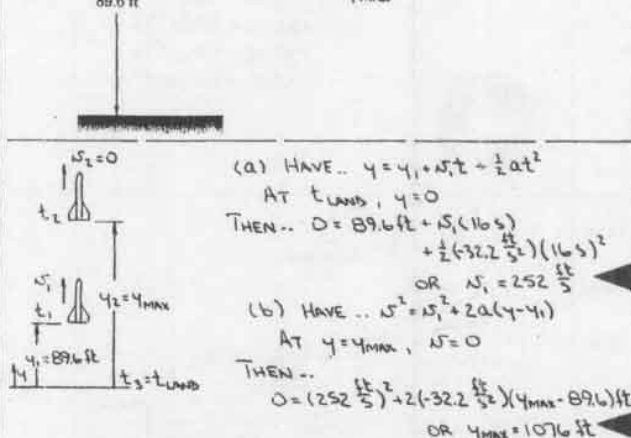 89.6 ft
v₂=0
t₂
v₁
t₁
y₂=yMAX
y₁=89.6 ft
y
t₃=tLAND
(a) HAVE.. y = y₁ + v₁t + ½ at²
AT tLAND, y=0
THEN.. 0 = 89.6 ft + v₁(16 s)
+ ½(-32.2 ft/s²)(16 s)²
OR v₁ = 252 ft/s
(b) HAVE.. v² = v₁² + 2a(y-y₁)
AT y=yMAX, v=0
THEN..
0=(252 ft/s)² + 2(-32.2 ft/s²)(yMAX-89.6)ft
OR yMAX=1076 ft